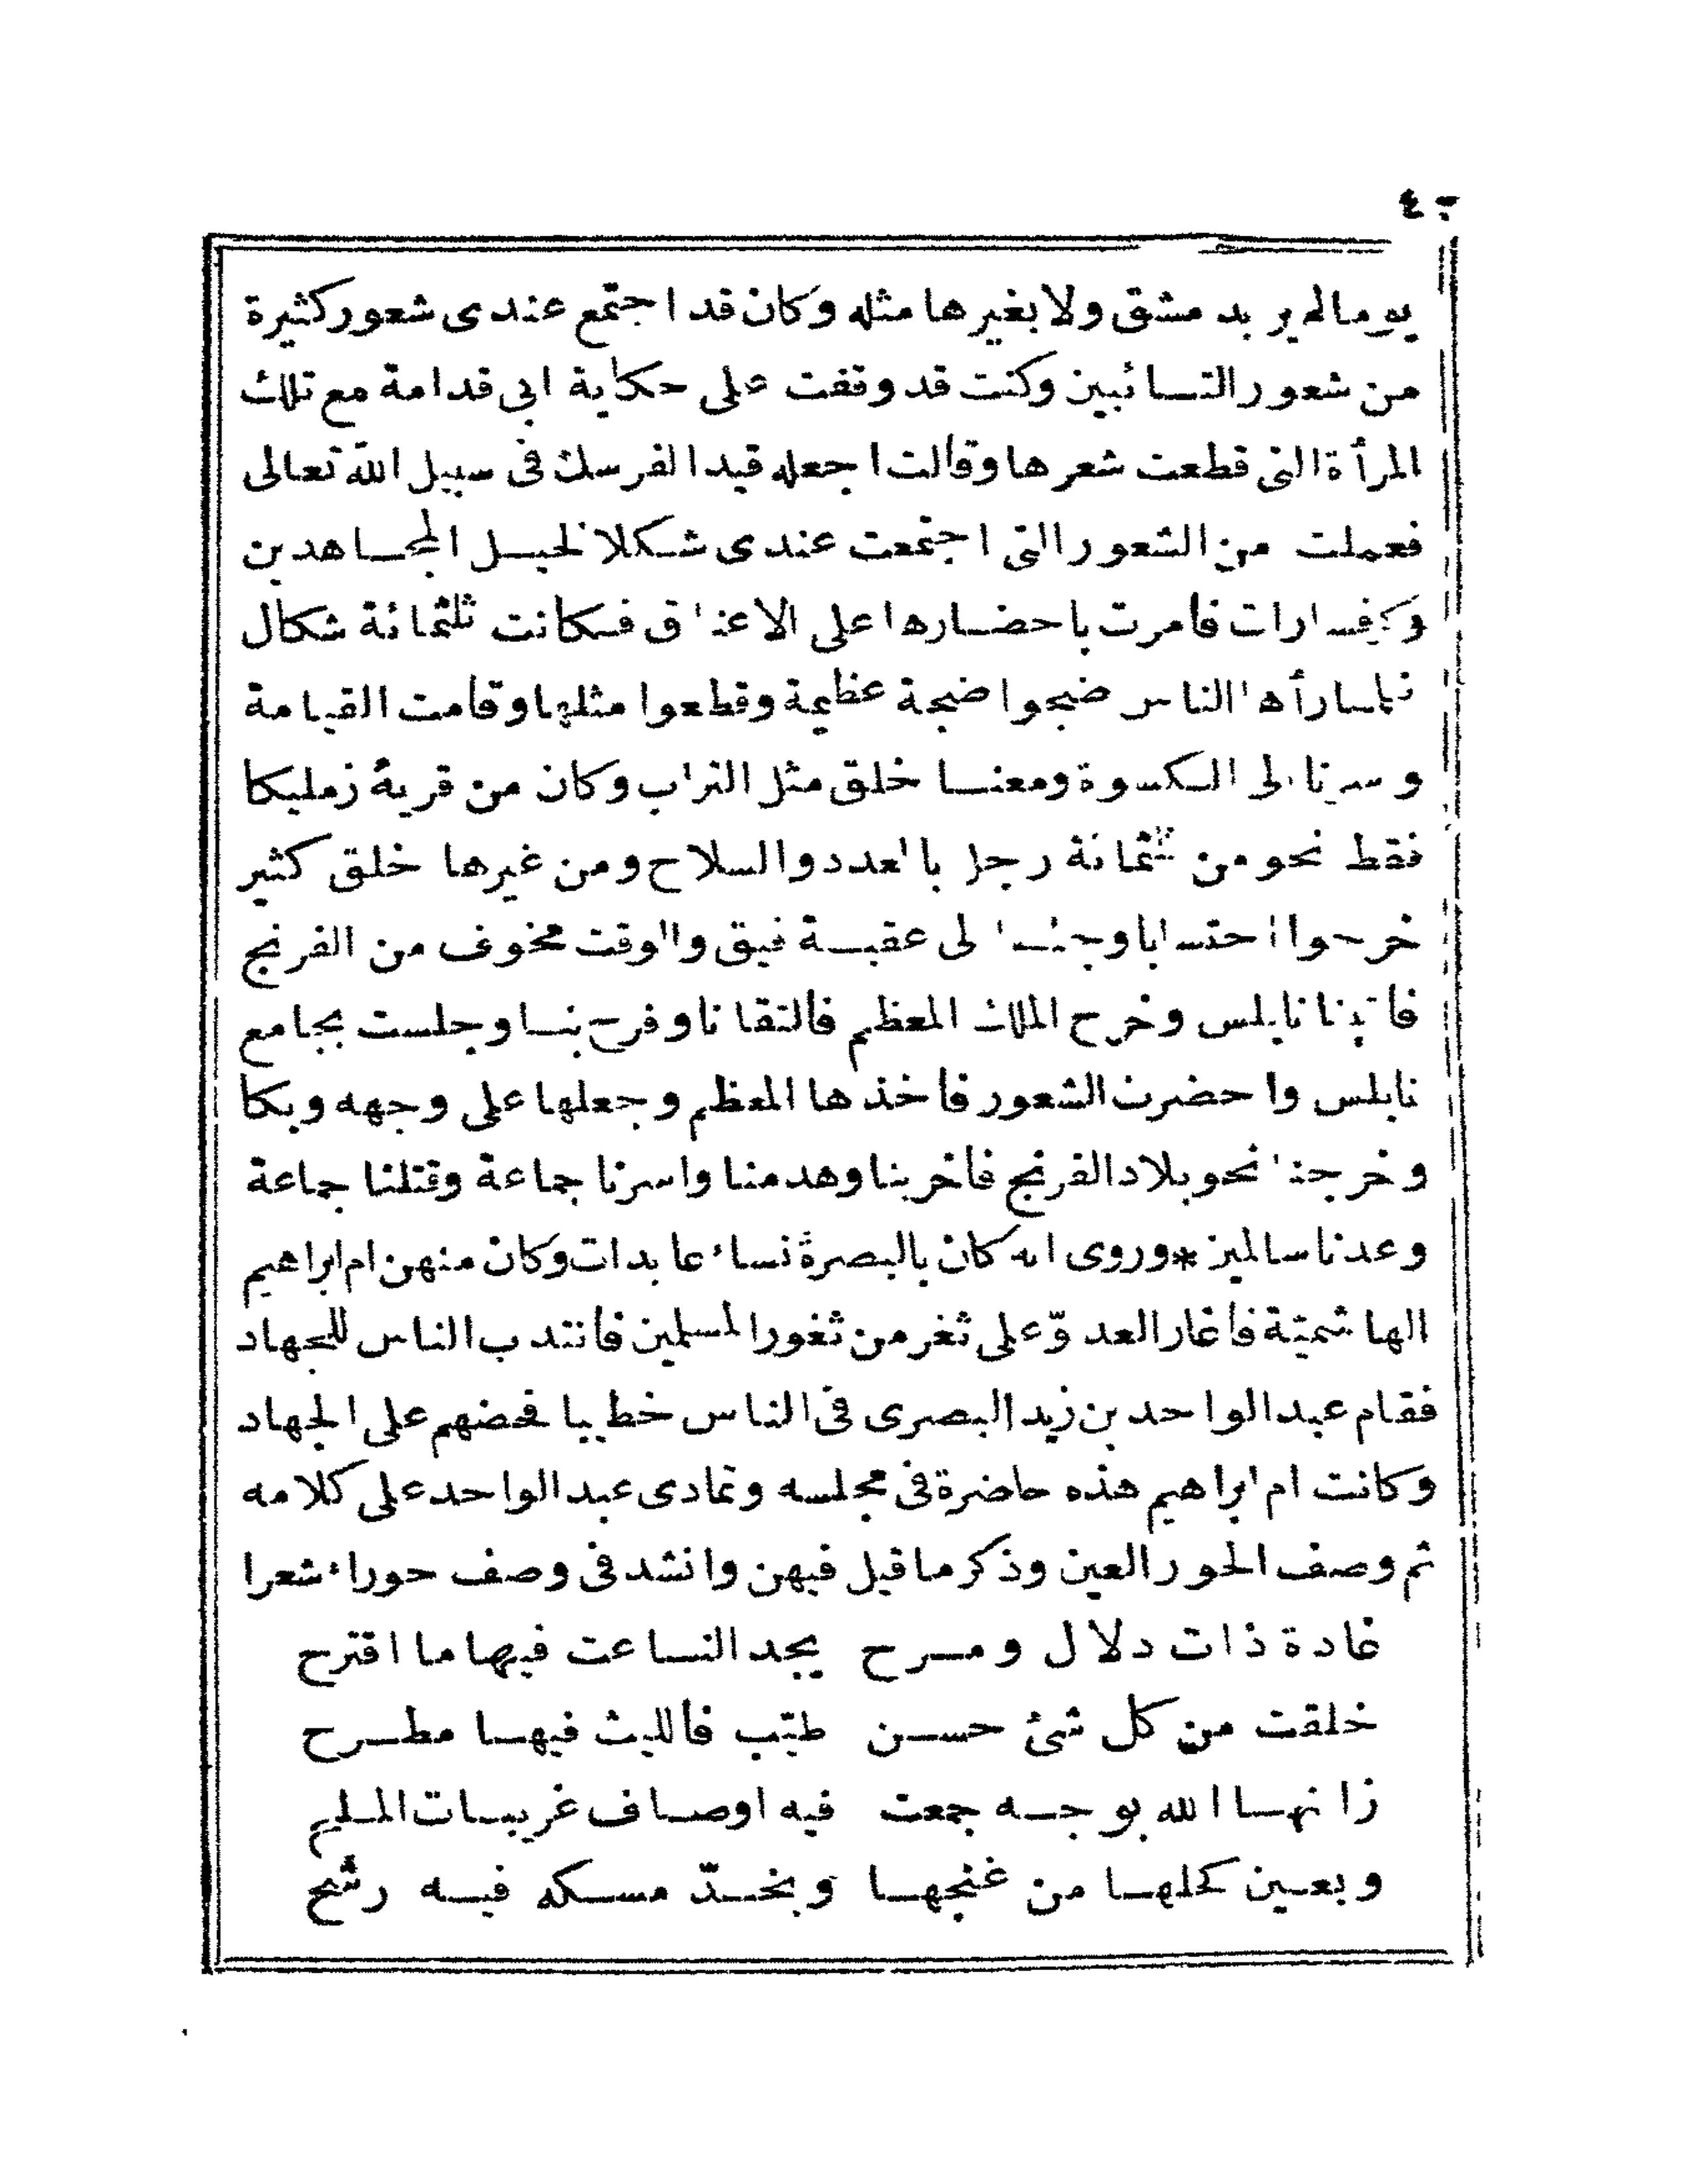 ٤٠
يوما لم ير بدمشق ولا بغيرها مثله وكان قد اجتمع عندى شعور كثيرة
من شعور التسائبين وكنت قد وقفت على حكاية ابى قدامة مع تلك
المرأة التى قطعت شعرها وقالت اجعله قيدا لفرسك فى سبيل الله تعالى
فعملت من الشعور التى اجتمعت عندى شكلا لخيل المجاهدين
وكفسارات فأمرت باحضارها على الاعناق فكانت ثلثمائة شكال
فلما رأها الناس ضجوا ضجة عظيمة وقطعوا مثلها وقامت القيامة
وسرنا الى الكسوة ومعنا خلق مثل التراب وكان من قرية زملكا
فقط نحو من ثلثمائة رجل بالعدد والسلاح ومن غيرها خلق كثير
خرجوا احتسابا وجئنا الى عقبة فيق والوقت مخوف من الفرنج
فأتينا نابلس وخرج الملك المعظم فالتقانا وفرح بنا وجلست بجامع
نابلس واحضرت الشعور فأخذها المعظم وجعلها على وجهه وبكا
وخرجنا نحو بلاد الفرنج فأخربنا وهدمنا واسرنا جماعة وقتلنا جماعة
وعدنا سالمين *وروى انه كان بالبصرة نساء عابدات وكان منهن ام ابراهيم
الهاشميّة فأغار العدوّ على ثغر من ثغور المسلمين فانتدب الناس للجهاد
فقام عبد الواحد بن زيد البصرى فى الناس خطيبا فحضهم على الجهاد
وكانت ام ابراهيم هذه حاضرة فى مجلسه وتمادى عبد الواحد على كلامه
ثم وصف الحور العين وذكر ما قيل فيهن وانشد فى وصف حوراء شعرا
غادة ذات دلال ومرح يجد النساعت فيها ما اقترح
خلقت من كل شئ حسن طيّب فالليث فيها مطرح
زانها الله بوجه جمعت فيه اوصاف غريبات الملح
وبعين كحلها من غنجها وبخدّ مسكه فيه رشح